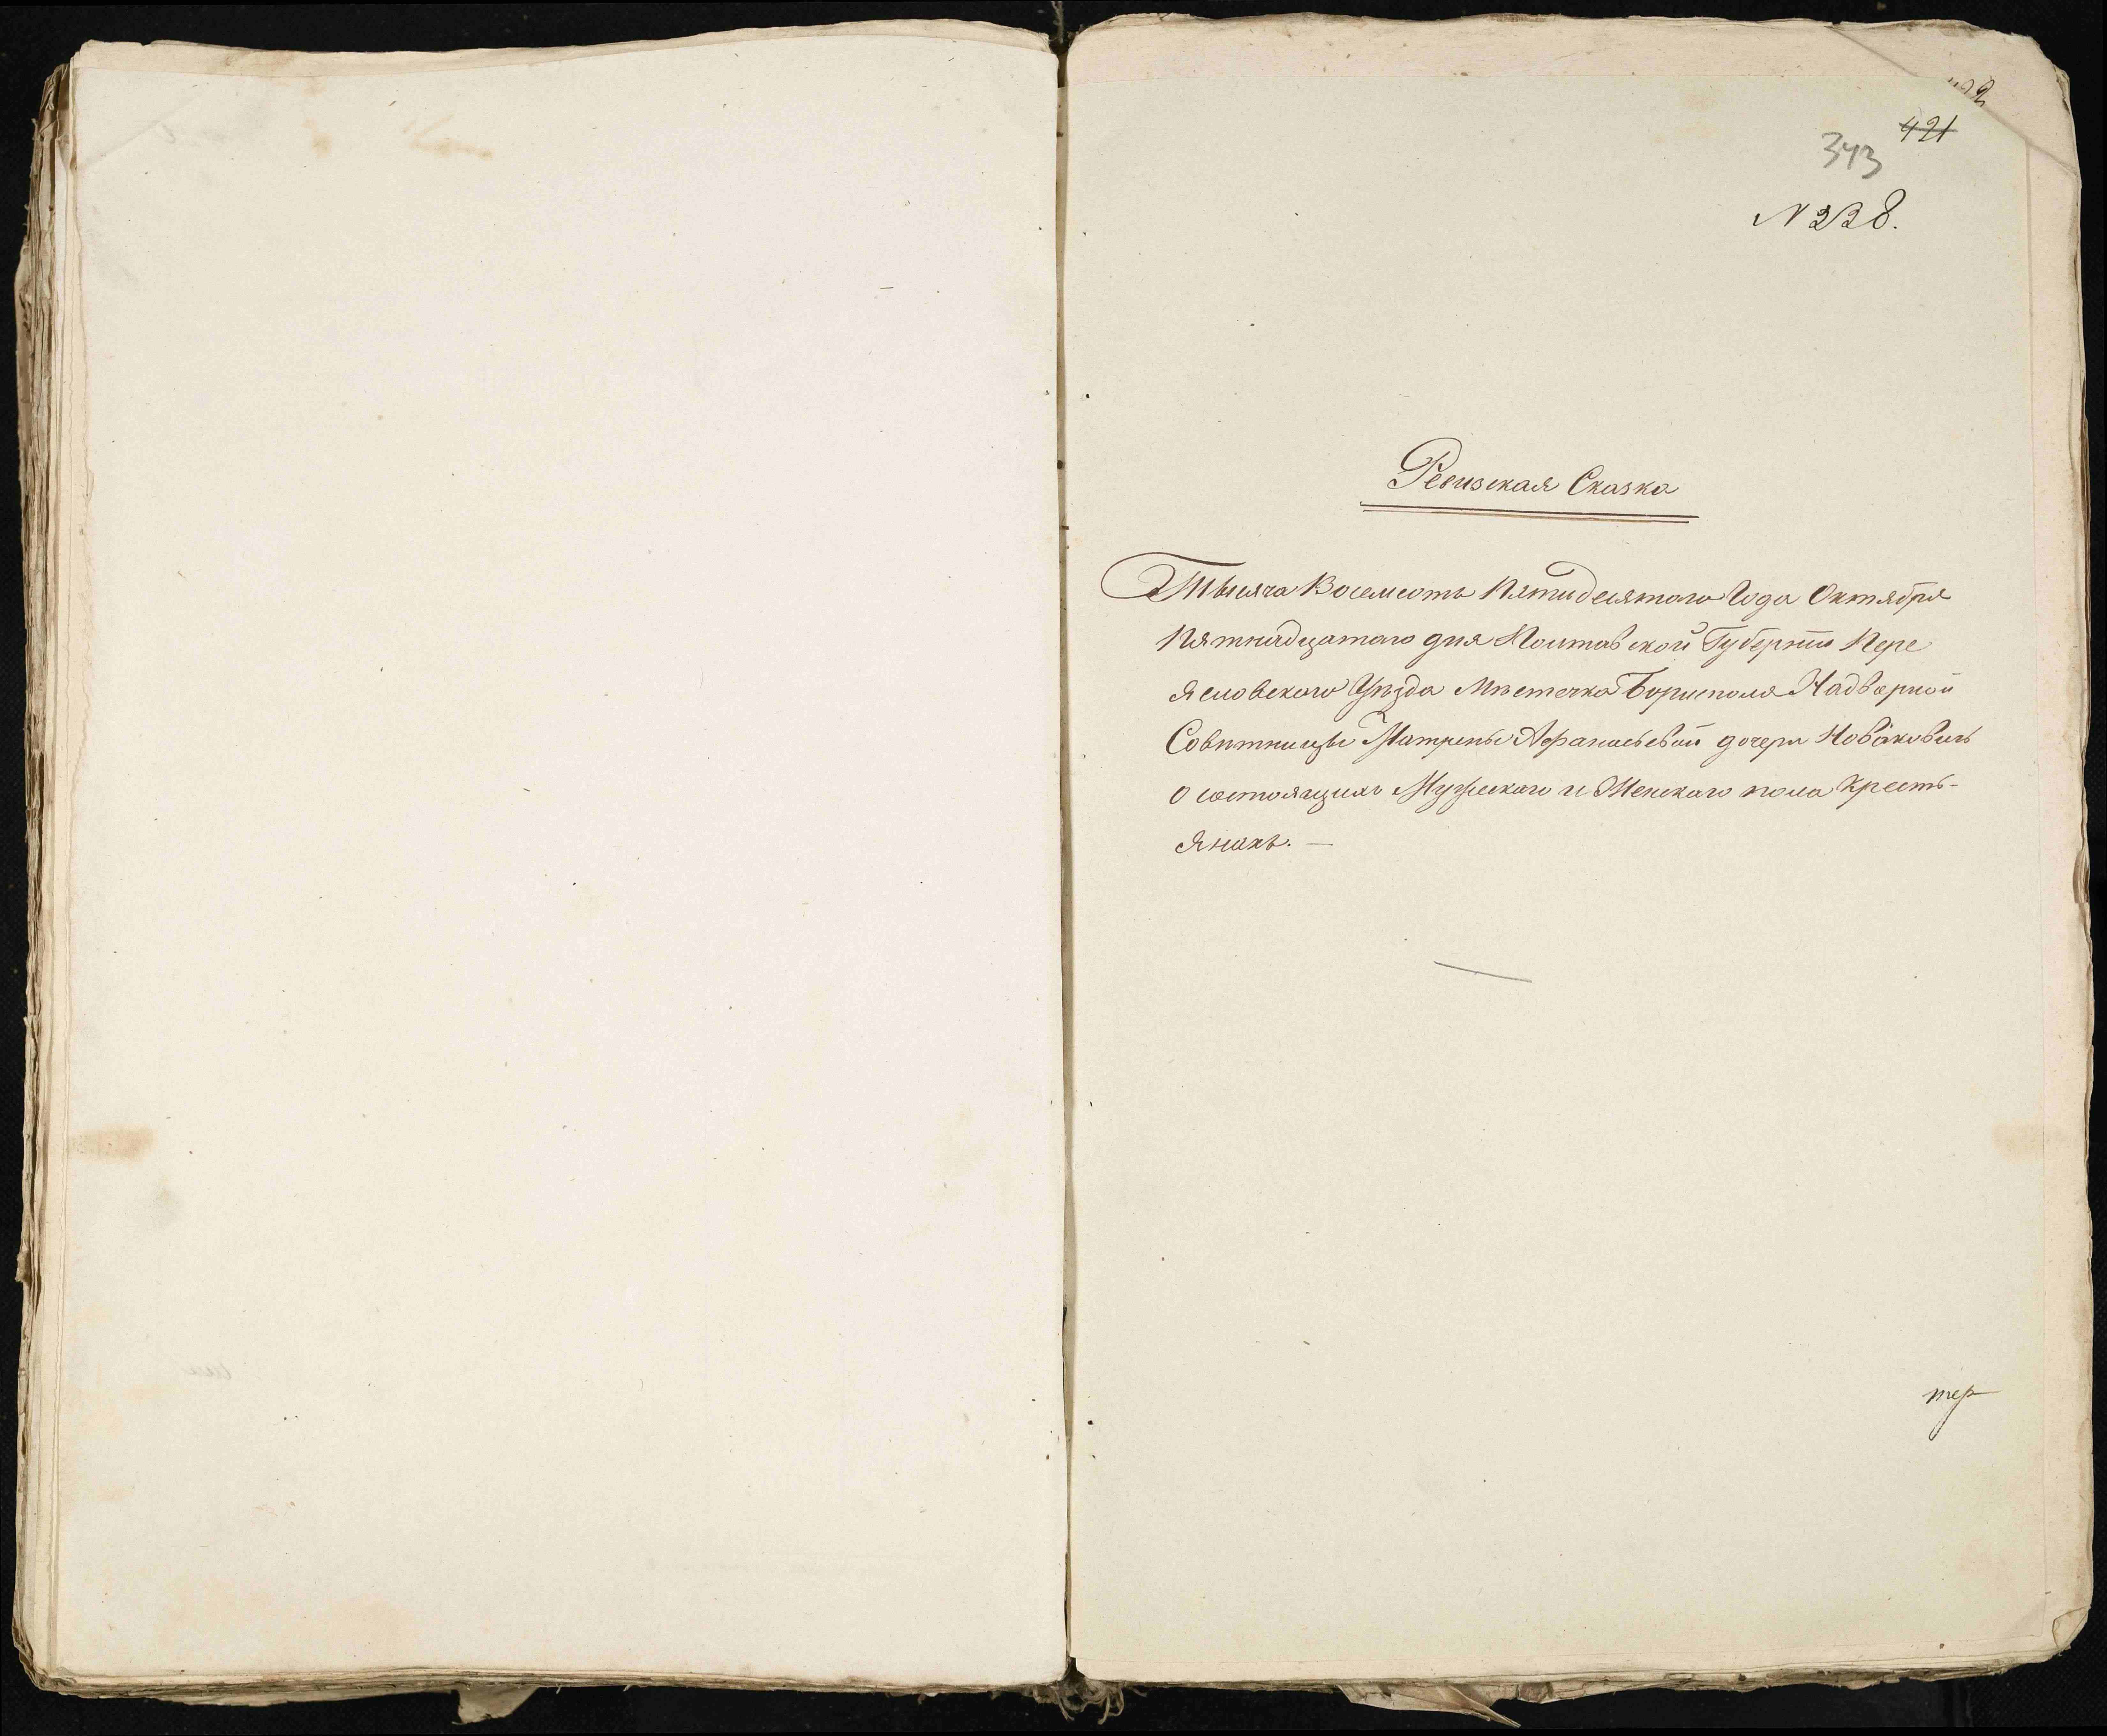 421
343
N 338.
Ревизская Сказка
Тысяча Восемсотъ Пятидесятого Года Октября
Пятнадцатаго дня Полтавской Губерніи Пере
яславского Уѣзда Мѣстечка Борисполя Надворной
Совѣтницы Матрены Афанасьевой дочери Новаковичь
о состоящихъ Мужескаго и Женскаго пола Кресть-
янахъ. —